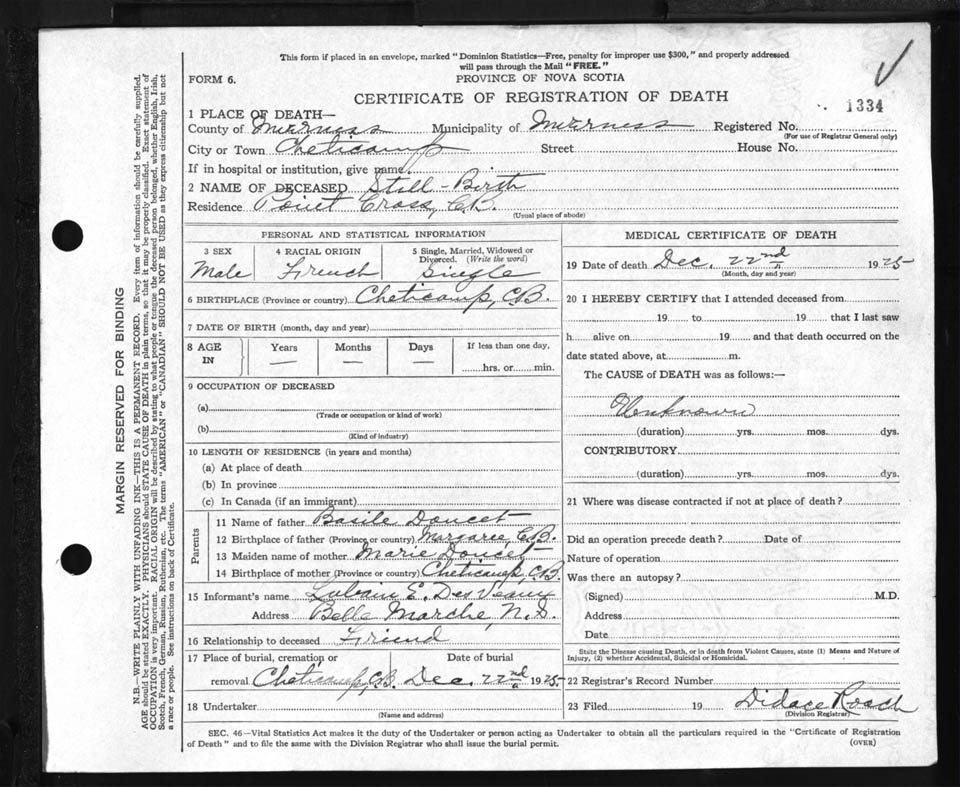 This form if placed in an envelope, marked "Dominion Statistics—Free, penalty for improper use $300," and properly addressed
will pass through the Mail "FREE."
FORM 6.
PROVINCE OF NOVA SCOTIA
CERTIFICATE OF REGISTRATION OF DEATH
1334
1 PLACE OF DEATH—
County of Inverness Municipality of Inverness Registered No.
(For use of Registrar General only)
City or Town Cheticamp Street House No.
If in hospital or institution, give name
2 NAME OF DECEASED Still-Birth
Residence Point Cross, C.B.
(Usual place of abode)
PERSONAL AND STATISTICAL INFORMATION
3 SEX 4 RACIAL ORIGIN 5 Single, Married, Widowed or
Divorced. (Write the word)
Male French Single
6 BIRTHPLACE (Province or country) Cheticamp, C.B.
7 DATE OF BIRTH (month, day and year)
8 AGE IN Years Months Days If less than one day,
— — — hrs. or min.
9 OCCUPATION OF DECEASED
(a)
(Trade or occupation or kind of work)
(b)
(Kind of industry)
10 LENGTH OF RESIDENCE (in years and months)
(a) At place of death
(b) In province
(c) In Canada (if an immigrant)
Parents
11 Name of father Basile Doucet
12 Birthplace of father (Province or country) Margaree, C.B.
13 Maiden name of mother Marie Doucet
14 Birthplace of mother (Province or country) Cheticamp, C.B.
15 Informant's name E. DesVeaux
Address Belle Marche, N.S.
16 Relationship to deceased Friend
17 Place of burial, cremation or Date of burial
removal Cheticamp, C.B. Dec. 22nd 1925
18 Undertaker
(Name and address)
MEDICAL CERTIFICATE OF DEATH
19 Date of death Dec. 22nd 1925
(Month, day and year)
20 I HEREBY CERTIFY that I attended deceased from
19 to 19 that I last saw
h alive on 19 and that death occurred on the
date stated above, at m.
The CAUSE of DEATH was as follows:—
Unknown
(duration) yrs. mos. dys.
CONTRIBUTORY
(duration) yrs. mos. dys.
21 Where was disease contracted if not at place of death?
Did an operation precede death? Date of
Nature of operation
Was there an autopsy?
(Signed) M.D.
Address
Date
State the Disease causing Death, or in death from Violent Causes, state (1) Means and Nature of
Injury, (2) whether Accidental, Suicidal or Homicidal.
22 Registrar's Record Number
23 Filed 19 Didace Roach
(Division Registrar)
SEC. 46—Vital Statistics Act makes it the duty of the Undertaker or person acting as Undertaker to obtain all the particulars required in the "Certificate of Registration
of Death" and to file the same with the Division Registrar who shall issue the burial permit.
(OVER)
MARGIN RESERVED FOR BINDING
N.B.—WRITE PLAINLY WITH UNFADING INK—THIS IS A PERMANENT RECORD. Every item of information should be carefully supplied.
AGE should be stated EXACTLY. PHYSICIANS should STATE CAUSE OF DEATH in plain terms, so that it may be properly classified. Exact statement of
OCCUPATION is very important. RACIAL ORIGIN will be described by stating to what people or tongue the deceased person belonged, whether English, Irish,
Scotch, French, German, Russian, Ruthenian, etc. The terms "AMERICAN" or "CANADIAN" SHOULD NOT BE USED as they express citizenship but not
a race or people. See instructions on back of Certificate.